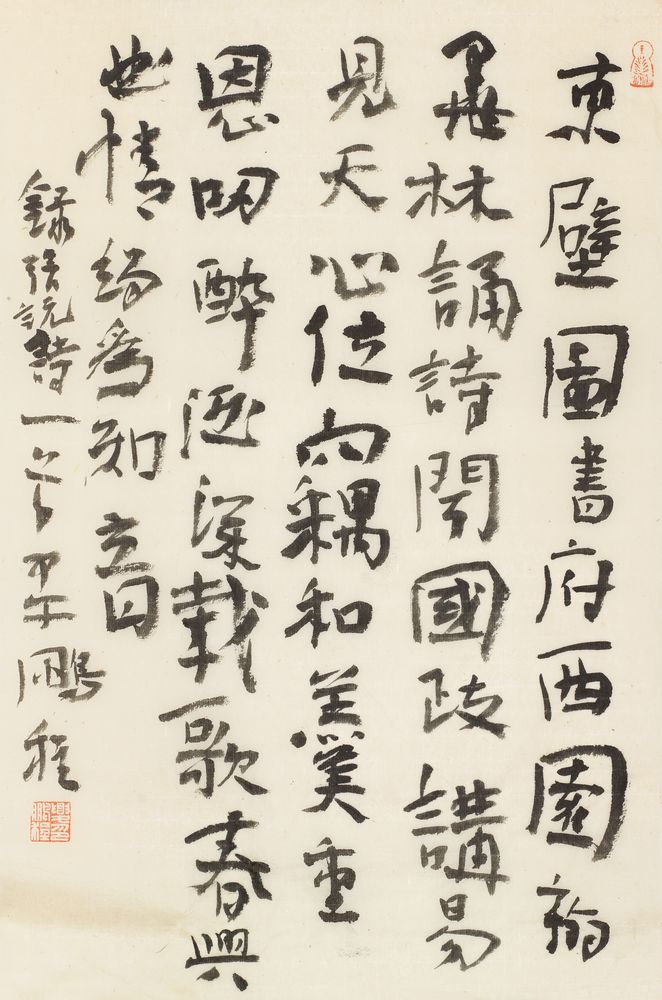 東壁圖書府西園翰
墨林誦詩聞國政講易
見天心位竊和羹重
恩叨醉酒深載歌春興
曲情竭為知音
錄張說詩一首鵬程